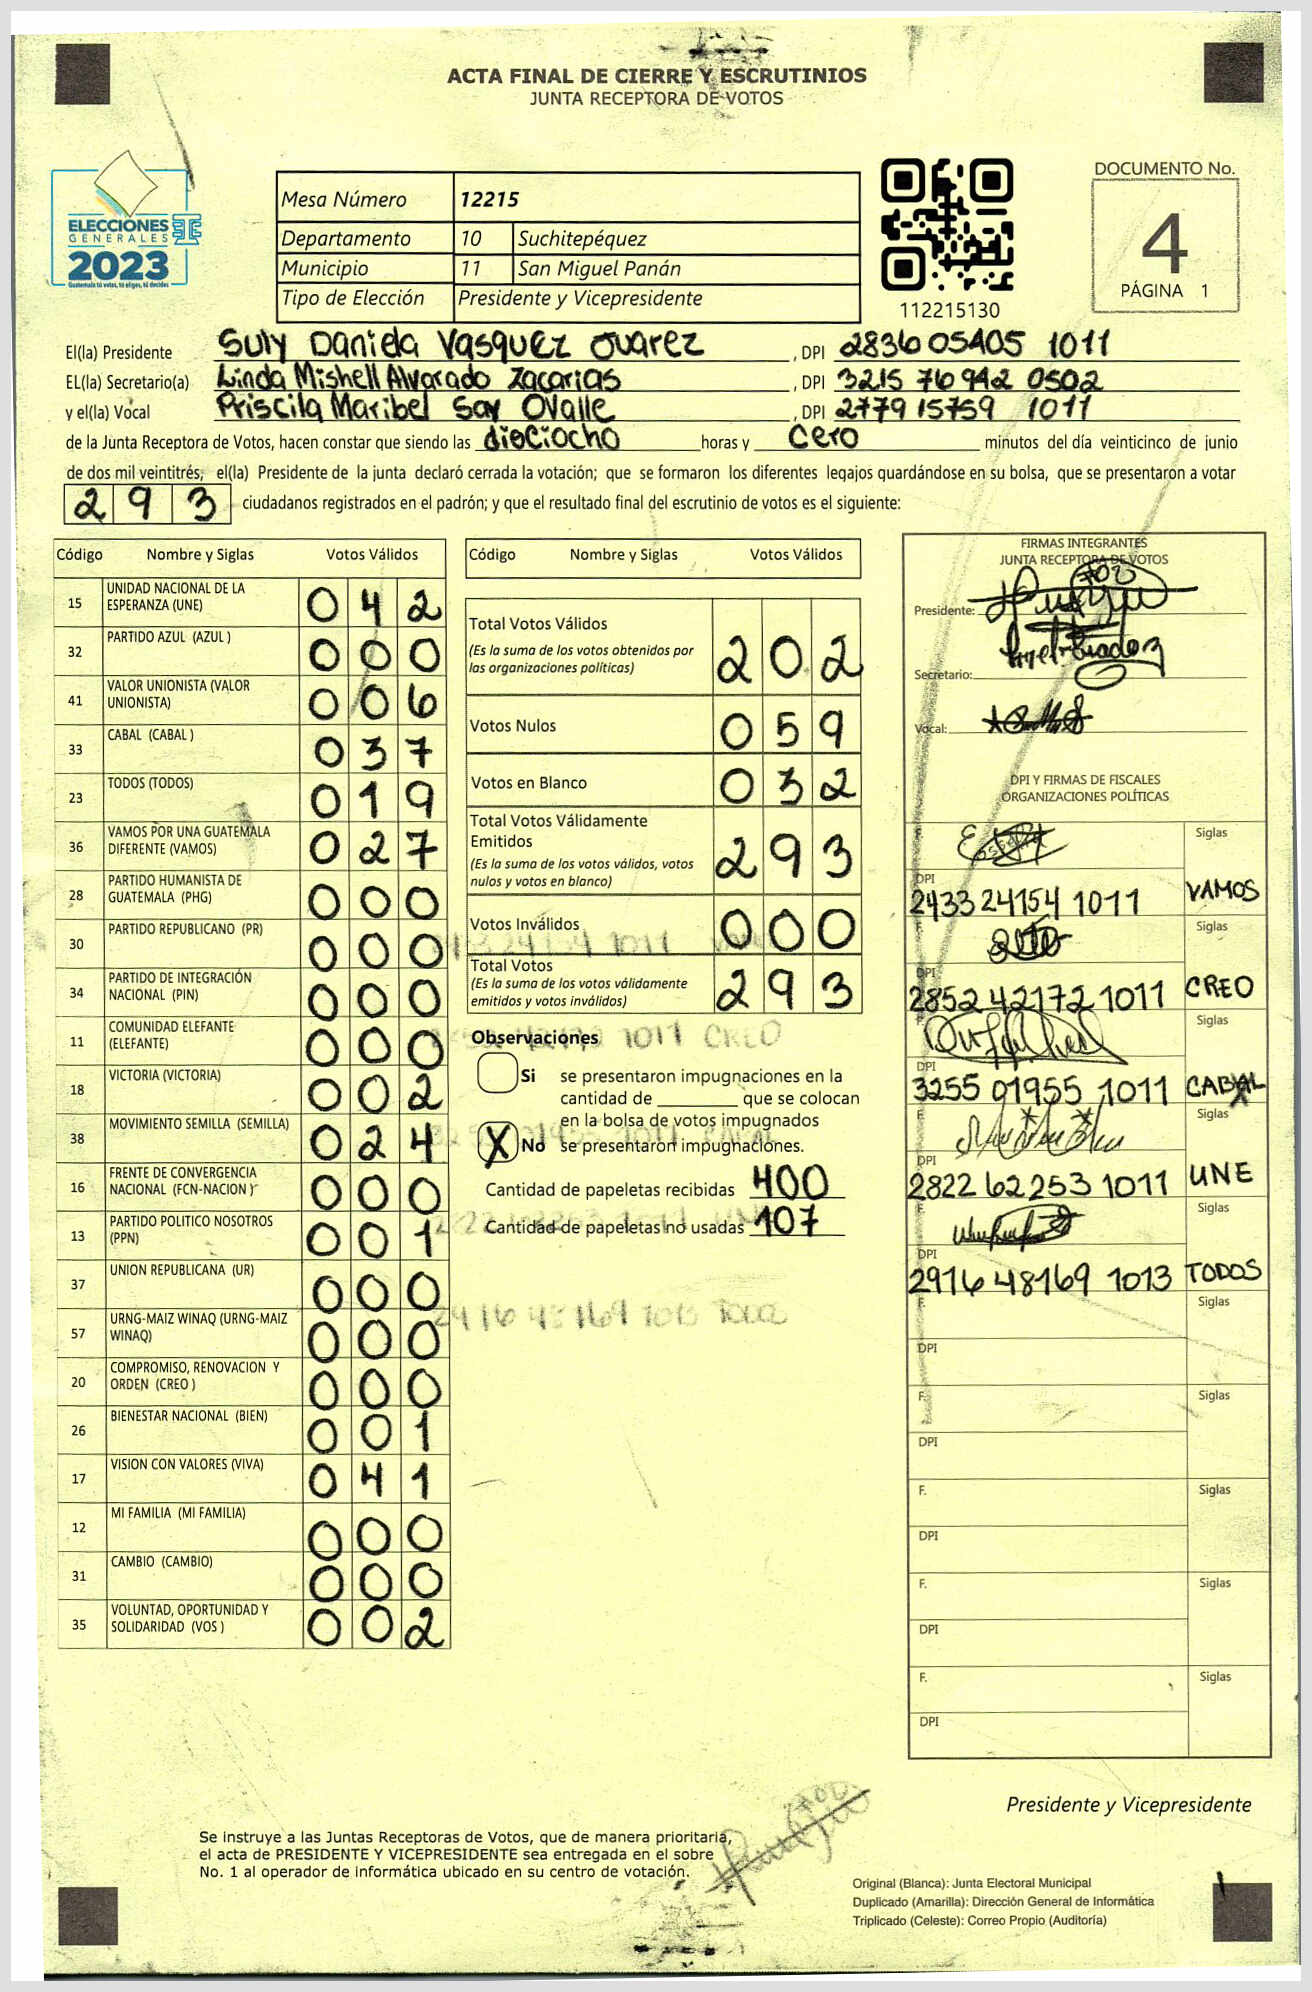 ACTA FINAL DE CIERRE Y ESCRUTINIOS
JUNTA RECEPTORA DE VOTOS
ELECCIONES
GENERALES
2023
Guatemala tú votas, tú eliges, tú decides
Mesa Número 12215
Departamento 10 Suchitepéquez
Municipio 11 San Miguel Panán
Tipo de Elección Presidente y Vicepresidente
112215130
DOCUMENTO No.
4
PÁGINA 1
El(la) Presidente Suly Daniela Vasquez Juarez, DPI 2836 05405 1011
EL(la) Secretario(a) Linda Mishell Alvarado Zacarias, DPI 3215 76942 0502
y el(la) Vocal Priscila Maribel Say Ovalle, DPI 2779 15759 1011
de la Junta Receptora de Votos, hacen constar que siendo las dieciocho horas y cero minutos del día veinticinco de junio
de dos mil veintitrés, el(la) Presidente de la junta declaró cerrada la votación; que se formaron los diferentes legajos quardándose en su bolsa, que se presentaron a votar
293 ciudadanos registrados en el padrón; y que el resultado final del escrutinio de votos es el siguiente:
Código Nombre y Siglas Votos Válidos
15 UNIDAD NACIONAL DE LA ESPERANZA (UNE) 042
32 PARTIDO AZUL (AZUL ) 000
41 VALOR UNIONISTA (VALOR UNIONISTA) 006
33 CABAL (CABAL ) 037
23 TODOS (TODOS) 019
36 VAMOS POR UNA GUATEMALA DIFERENTE (VAMOS) 027
28 PARTIDO HUMANISTA DE GUATEMALA (PHG) 000
30 PARTIDO REPUBLICANO (PR) 000
34 PARTIDO DE INTEGRACIÓN NACIONAL (PIN) 000
11 COMUNIDAD ELEFANTE (ELEFANTE) 000
18 VICTORIA (VICTORIA) 002
38 MOVIMIENTO SEMILLA (SEMILLA) 024
16 FRENTE DE CONVERGENCIA NACIONAL (FCN-NACION ) 000
13 PARTIDO POLITICO NOSOTROS (PPN) 001
37 UNION REPUBLICANA (UR) 000
57 URNG-MAIZ WINAQ (URNG-MAIZ WINAQ) 000
20 COMPROMISO, RENOVACION Y ORDEN (CREO ) 000
26 BIENESTAR NACIONAL (BIEN) 001
17 VISION CON VALORES (VIVA) 041
12 MI FAMILIA (MI FAMILIA) 000
31 CAMBIO (CAMBIO) 000
35 VOLUNTAD, OPORTUNIDAD Y SOLIDARIDAD (VOS ) 002
Código Nombre y Siglas Votos Válidos
Total Votos Válidos 202
(Es la suma de los votos obtenidos por
las organizaciones políticas)
Votos Nulos 059
Votos en Blanco 032
Total Votos Válidamente
Emitidos 293
(Es la suma de los votos válidos, votos
nulos y votos en blanco)
Votos Inválidos 000
Total Votos 293
(Es la suma de los votos válidamente
emitidos y votos inválidos)
Observaciones
Si se presentaron impugnaciones en la
cantidad de ________ que se colocan
en la bolsa de votos impugnados
X No se presentaron impugnaciones.
Cantidad de papeletas recibidas 400
Cantidad de papeletas no usadas 107
FIRMAS INTEGRANTES
JUNTA RECEPTORA DE VOTOS
Presidente:
Secretario:
Vocal:
DPI Y FIRMAS DE FISCALES
ORGANIZACIONES POLÍTICAS
F. Siglas
DPI 2433 24154 1011 VAMOS
F. Siglas
DPI 2852 42172 1011 CREO
F. Siglas
DPI 3255 01955 1011 CABAL
F. Siglas
DPI 2822 62253 1011 UNE
F. Siglas
DPI 2916 48169 1013 TODOS
F. Siglas
DPI
F. Siglas
DPI
F. Siglas
DPI
F. Siglas
DPI
F. Siglas
DPI
Presidente y Vicepresidente
Se instruye a las Juntas Receptoras de Votos, que de manera prioritaria,
el acta de PRESIDENTE Y VICEPRESIDENTE sea entregada en el sobre
No. 1 al operador de informática ubicado en su centro de votación.
Original (Blanca): Junta Electoral Municipal
Duplicado (Amarilla): Dirección General de Informática
Triplicado (Celeste): Correo Propio (Auditoría)